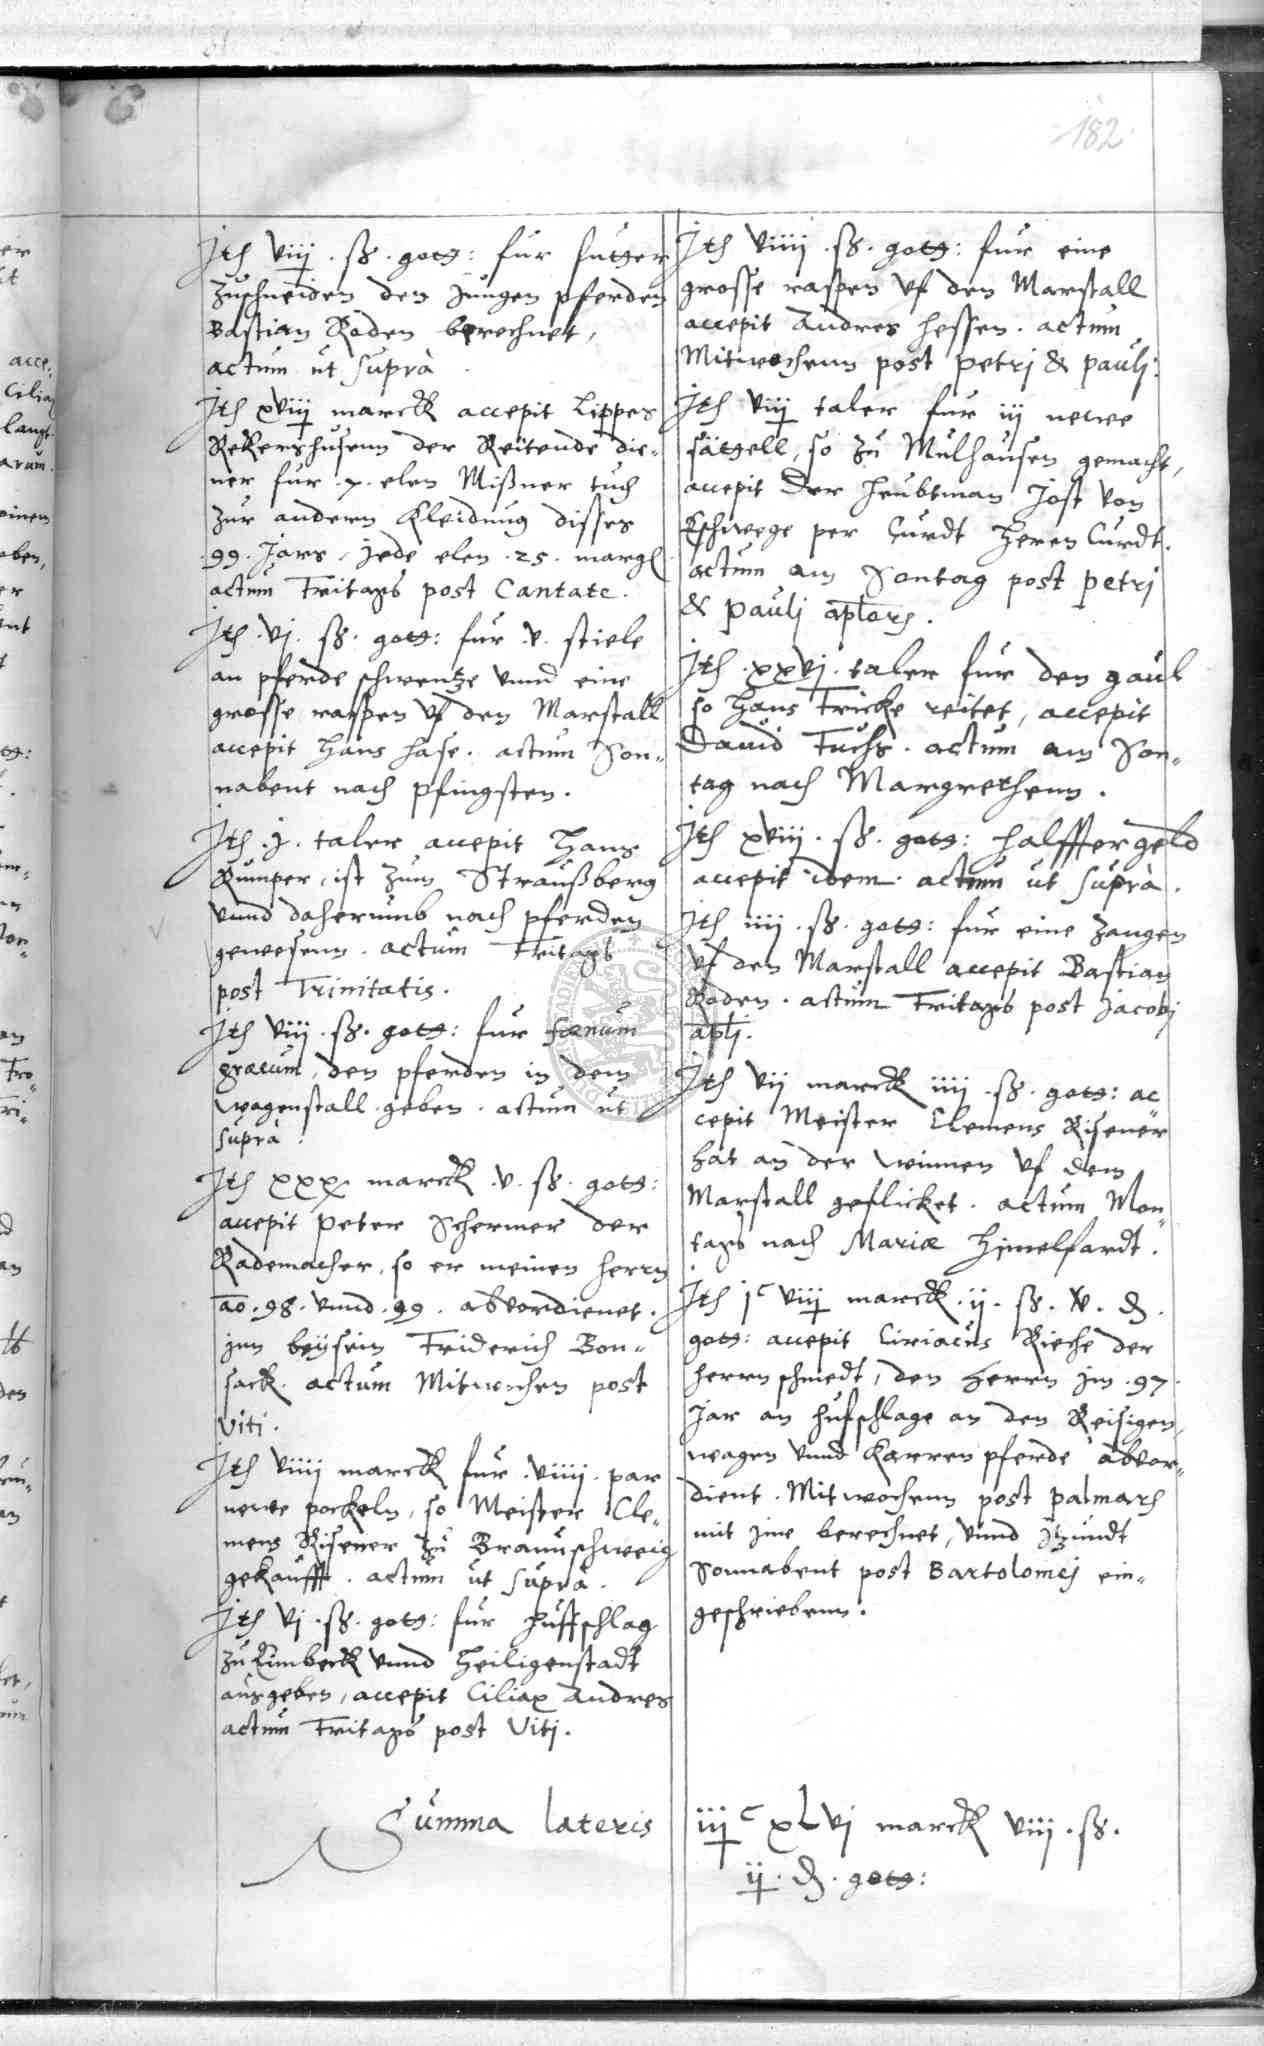 182
Jtem viij . ß . gots: fur futger
zuschneiden den jungen pferden
Bastian Roden berechnet,
actum ut suprà
Jtem xviij marck accepit Lippes
Rekershusenn der Reitende die„
ner fur .7. elen Mißner tuch
zur andern Kleidung disses
.99. Jars, jede elen .25. margl
actum Fritags post Cantate.
Jtem .vj. ß. gots: fur .v. stiele
an pferde schwentze vnnd eine
grosse raspen vf den Marstall
accepit Hans Hase. actum Son„
nabent nach Pfingsten.
Jtem .j. taler accepit Hans
Kumper, ist zum Straußberg
vnnd daherumb nach pferden
gewesenn. actum Fritags
post Trinitatis.
Jtem viij . ß. gots: fur foenum
graecum, den pferden in dem
wagenstall geben. actum ut
suprà.
Jtem xxx marck .v. ß. gots:
accepit Peter Schermer der
Rademacher, so er meinen herrn
ao .98. vnnd .99. abvordienet.
jm beÿsein Friderich Bon„
sack. actum Mitwochen post
Viti.
Jtem viiij marck fur .viiij. par
newe pockeln, so Meister Cle„
mens Risener zu Braunschweig
gekaufft. actum ut suprà.
Jtem vj .ß. gots: fur huffschlag
zu Eimbeck vnnd Heiligenstadt
ausgeben, accepit Ciliax Andres
actum Fritags post Viti.
Jtem viiij . ß. gots: fur eine
grosse raspen vf den Marstall
accepit Andres Hessen. actum
Mitwochenn post Petrj & Paulj.
Jtem viij taler fur iij newe
sätgell, so zu Mulhausen gemacht,
accepit Der Heubtman Jost von
Eschwege per Curdt Heren Curdt.
actum am Sontag post Petrj
& Paulj aplorum.
Jtem .xxvj. taler fur den gaul
so Hans Fricke reitet, accepit
Dauid Fuchs. actum am Son„
tag nach Margrethenn.
Jtem xviij . ß. gots: halfftergeld
accepit idem. actum ut suprà.
Jtem iiij . ß. gots: fur eine zangen
vf den Marstall accepit Bastian
Roden. actum Fritags post Jacobj
apli.
Jtem vij marck iiij . ß. gots: ac
cepit Meister Clemens Risener
hat an der winnen vf dem
Marstall geflicket. actum Mon„
tags nach Mariae Himelfardt.
Jtem jc viij marck .ij. ß. v. d.
gots: accepit Ciriacus Rieche der
herrn schmedt, den Herrn jm .97.
Jar an hufschlage an den Reisigen,
wagen vnnd Karren pferde abvor„
dient. Mitwochenn post palmarum
mit jme berechnet, vnnd jtzundt
Sonnabent post Bartolomej ein„
geschriebenn.
Summa lateris iijc xLvj marck viij . ß.
ij. d. gots: